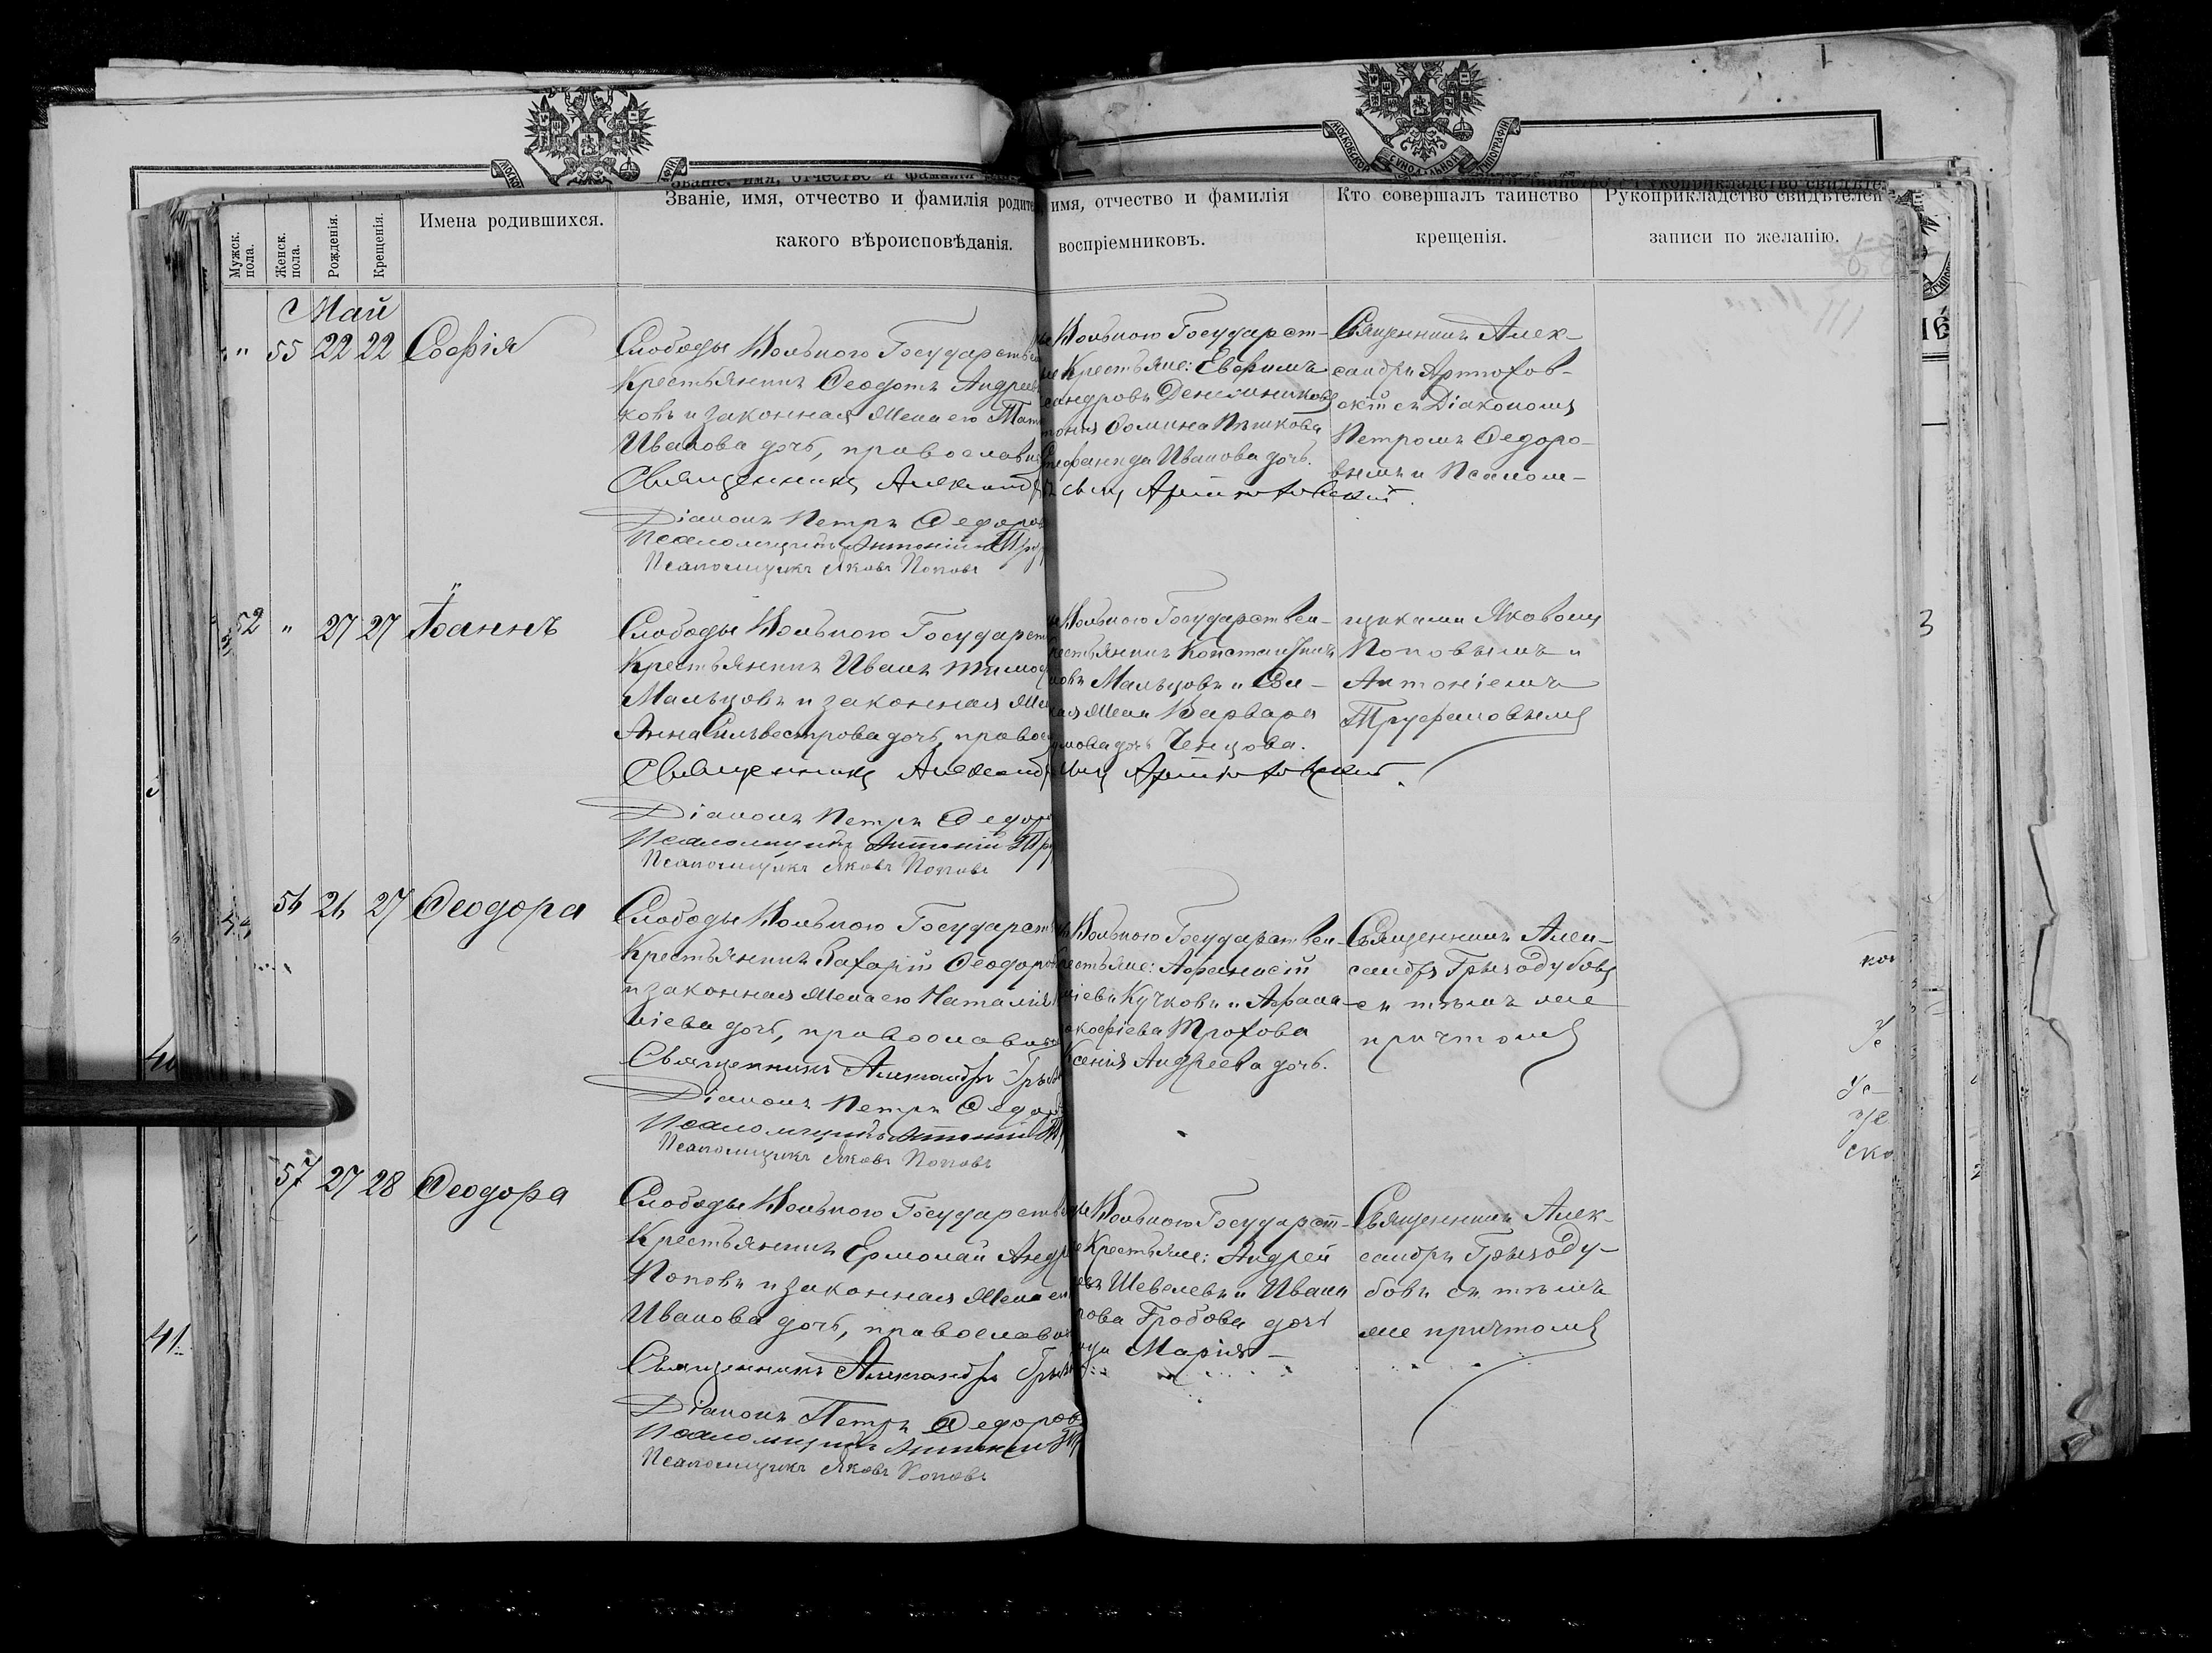 МОСКОВСКОЙ СѴНОДАЛЬНОЙ ТИПОГРАФІИ
Мужск. пола.
Женск. пола.
Рожденія.
Крещенія.
Имена родившихся.
Званіе, имя, отчество и фамилія родите
какого вѣроисповѣданія.
имя, отчество и фамилія
воспріемниковъ.
Кто совершалъ таинство
крещенія.
Рукоприкладство свидѣтелей
записи по желанію.
Май
" 55 22 22 Софія
Слободы Вольного Государств
Крестьянинъ Ѳеодотъ Андреев
ковъ и законная жена его Тат
Иванова дочь, православн
Священникъ Александ
Діаконъ Петръ Ѳедоров
Псаломщикъ Антоній Тру
Псаломщикъ Яковъ Поповъ
Вольного Государст-
Крестьяне: Евфимъ
сандровъ
Ѳомина Пѣшкова
Стефанида Иванова дочь.
Священникъ Алек-
сандръ Артюхов-
скій съ Діакономъ
Петромъ Ѳедоро-
вымъ и Псалом-
52 " 27 27 Іоаннъ
Слободы Вольного Государст
Крестьянинъ Иванъ Тимоѳ
Мальцовъ и законная же
Анна Сильвестрова дочь, правос
Священникъ Александ
Діаконъ Петръ Ѳедоро
Псаломщикъ Антоній Тру
Псаломщикъ Яковъ Поповъ
Вольного Государствен-
рестьянинъ Константинъ
новъ Мальцовъ и
кая жена Варвара
мова дочь Ченцова.
Артюховскій.
щиками Яковомъ
Поповымъ и
Антоніемъ
Труфановымъ
56 26 27 Ѳеодора
Слободы Вольного Государств
Крестьянинъ Захарій Ѳеодоро
и законная жена его Наталія
піева дочь, православн
Священникъ Александръ Гры
Діаконъ Петръ Ѳедор
Псаломщикъ Антоній Т
Псаломщикъ Яковъ Поповъ
Вольного Государствен-
рестьяне: Аѳанасій
ніевъ Кучковъ и Аѳана-
Трохова
Ксенія Андреева дочь.
Священникъ Алек-
сандръ Грызодубовъ
съ тѣмъ же
причтомъ
57 27 28 Ѳеодора
Слободы Вольного Государств
Крестьянинъ Ермолай Андр
Поповъ и законная жена ег
Иванова дочь, православн
Священникъ Александръ Гры
Діаконъ Петръ Ѳедоров
Псаломщикъ Антоній Т
Псаломщикъ Яковъ Поповъ
Вольного Государст-
Крестьяне: Андрей
евъ Шевелевъ и Иванъ
рова Гробова дочь
Марія
Священникъ Алек-
сандръ Грызоду-
бовъ съ тѣмъ
же причтомъ
41